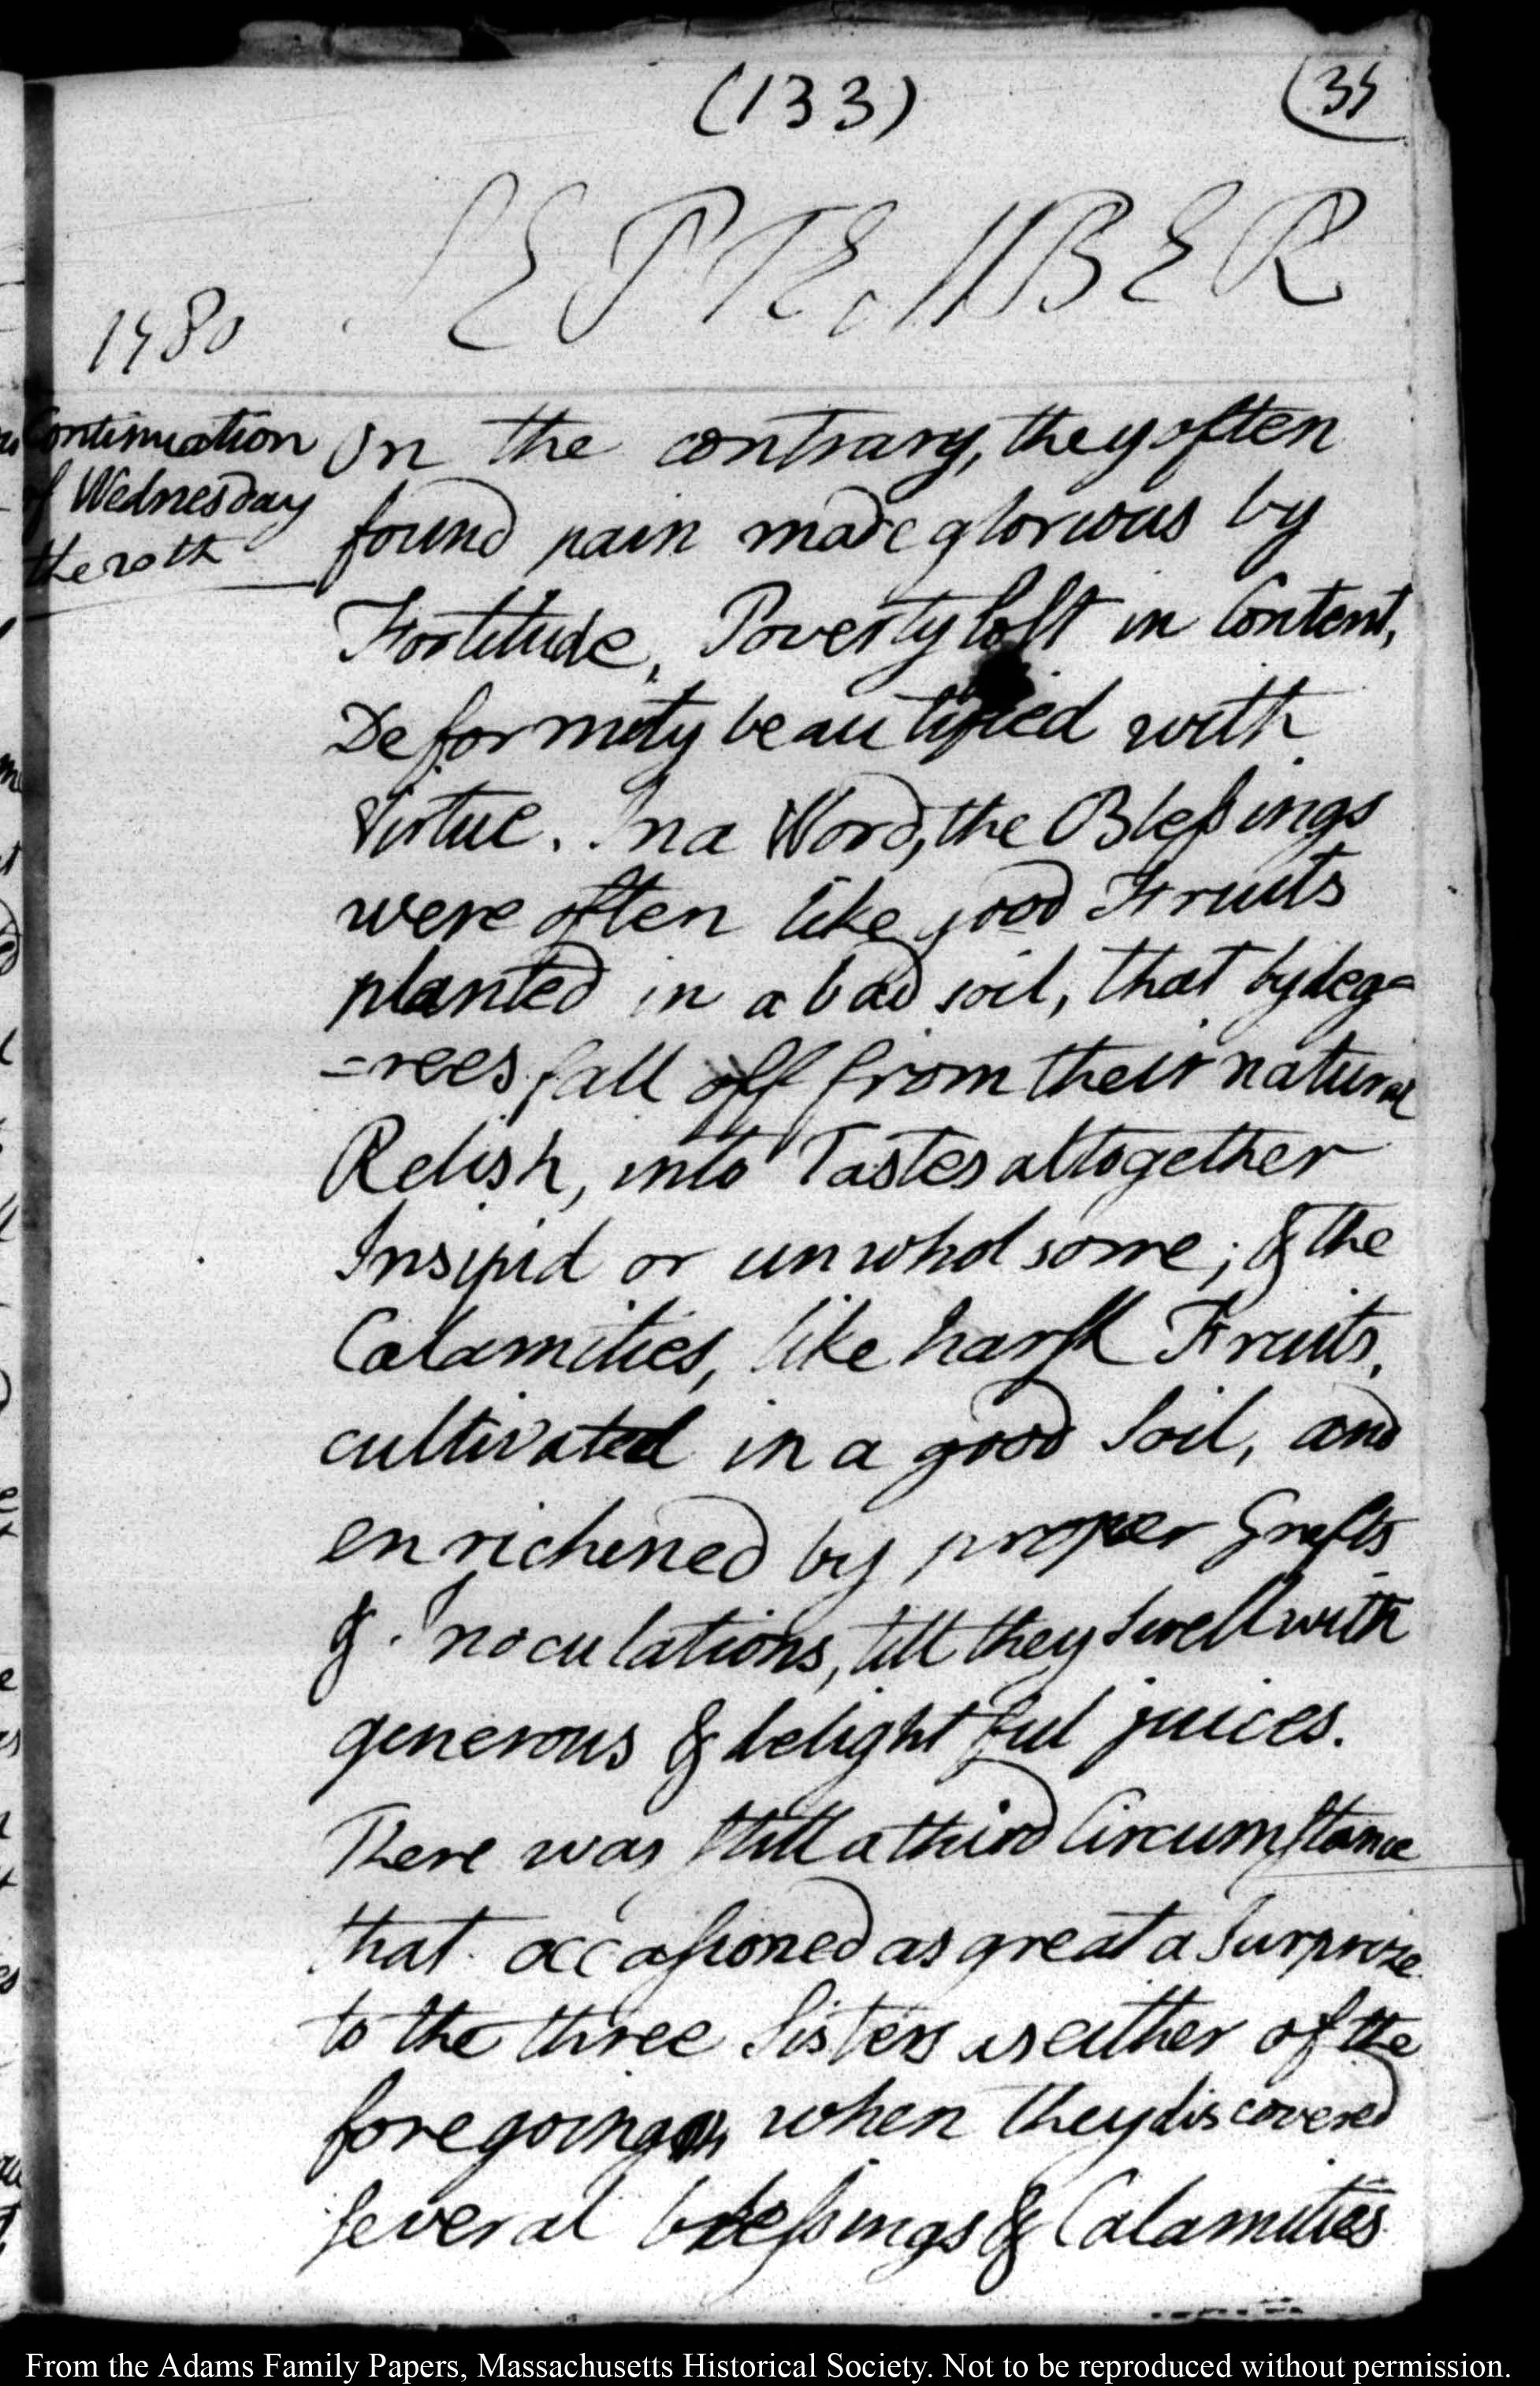 (133)
(35
SEPTEMBER
1780
Continuation
of Wednesday
the 20th
On the contrary, they often
found pain made glorious by
Fortitude, Poverty lost in Content,
Deformity beautified with
Virtue. In a Word, the Blessings
were often like good Fruits
planted in a bad soil, that by deg=
=rees fall off from their natural
Relish, into Tastes altogether
Insipid or unwholsome; & the
Calamities, like harsh Fruits,
cultivated in a good Soil, and
enrichened by proper Grafts
& Inoculations, till they swell with
generous & delightful juices.
There was still a third Circumstance
that occasioned as great a Surprize
to the three Sisters as either of the
foregoing when they discovered
several blessings & Calamities
From the Adams Family Papers, Massachusetts Historical Society. Not to be reproduced without permission.